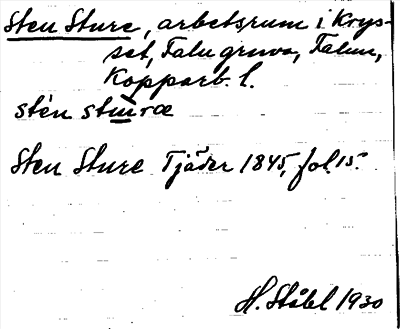 Sten Sture, arbetsrum i Krys-
set, Falu gruva, Falun,
Kopparb. l.
stén stúræ
Sten Sture Tjäder 1845, fol. 15.
H. Ståhl 1930